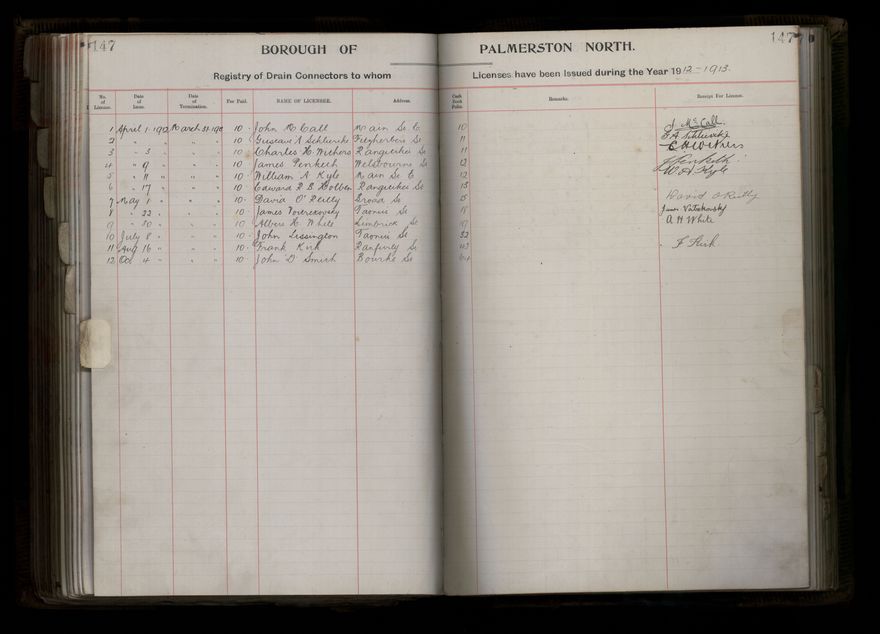 147 BOROUGH OF PALMERSTON NORTH. 147
Registry of Drain Connectors to whom Licenses have been Issued during the Year 1912-1913.
No. of License. Date of Issue. Date of Termination. Fee Paid. NAME OF LICENSEE. Address. Cash Book Folio. Remarks. Receipt For License.
1 April 1 1912 March 31 1913 10 John McCall Main St E 10 J McCall
2 " " " " 10 Gustave A Schlierike Fitzherbert St 11
3 " 3 " " 10 Charles H. Withers Rangitikei St 11
4 " 9 " " 10 James Penketh Welbourne St 12 J Penketh
5 " 11 " " 10 William A Kyle Main St E 12 W A Kyle
6 " 17 " " 10 Edward R B Holben Rangitikei St 13
7 May 1 " " 10 David O'Reilly Broad St 15 David O'Reilly
8 " 22 " " 10 James Taonui St 18
9 " 30 " " 10 Albert H. White Limbrick St 19 A H White
10 July 8 " " 10 John Lissington Taonui St 32
11 Aug 16 " " 10 Frank Kirk Ranfurly St 43 F Kirk
12 Oct 4 " " 10 John D Smith Bourke St 64